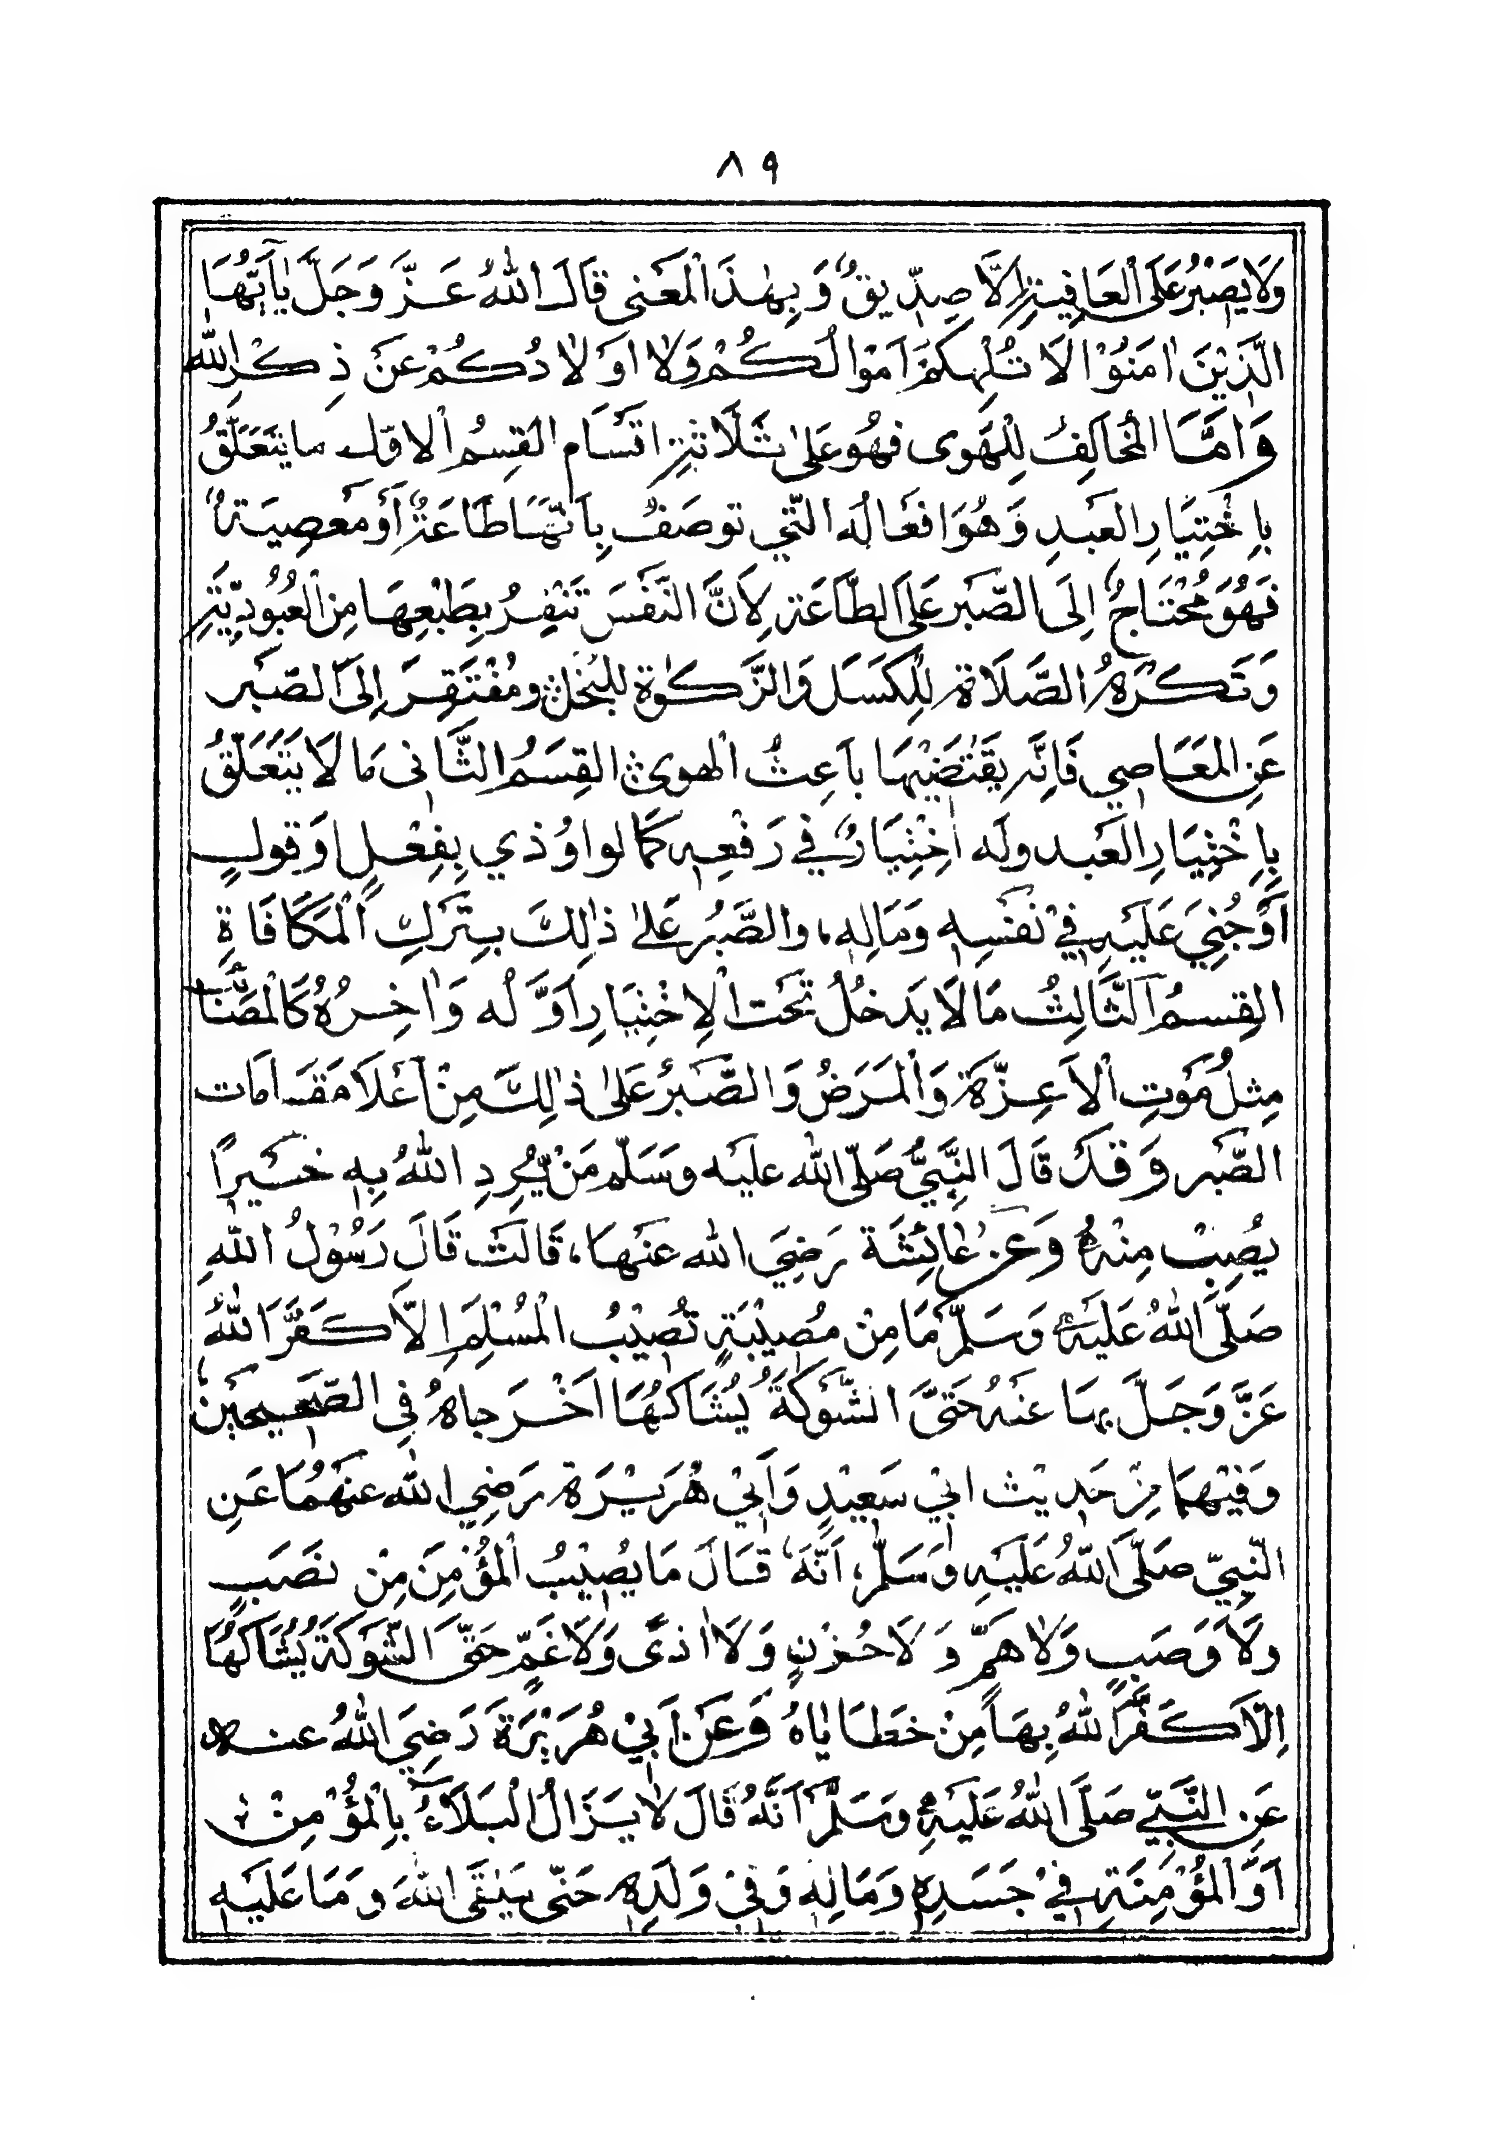 ٨٩
وَلَا يَصْبِرُ عَلَى الْعَافِيَةِ اِلَّا صِدِّيقٌ وَبِهٰذَا الْمَعْنٰى قَالَ اللّٰهُ عَزَّ وَجَلَّ يٰاَيُّهَا
الَّذِيْنَ اٰمَنُوْا لَا تُلْهِكُمْ اَمْوَالُكُمْ وَلَا اَوْلَادُكُمْ عَنْ ذِكْرِ اللّٰه
وَاَمَّا الْمُخَالِفُ لِلْهَوٰى فَهُوَ عَلٰى ثَلَاثَةِ اقسَام القِسمُ الاوّل ما يتَعَلَّقُ
بِاِخْتِيَارِ العَبدِ وَهُوَ افعَالُه الَّتِي تُوصَفُ بِاَنَّهَا طَاعَةٌ اَو مَعصِيَةٌ
فَهُوَ مُحْتَاجٌ اِلَى الصَّبَرِ عَلَى الطَّاعَةِ لِاَنَّ النَّفْسَ تَنْفِرُ بِطَبْعِهَا مِنَ الْعُبُودِيَّةِ
وَتَكْرَهُ الصَّلَاةَ لِلْكَسَل وَالزَّكٰوةَ لِلْبُخْلِ وَمُفْتَقِرَ اِلَى الصَّبَر
عَنِ المَعَاصِي فَاِنَّه يَقتَضِيْهَا بَاعِثُ الْهوٰى القِسَمُ الثَّانى مَا لَا يَتَعَلَّقُ
بِاِخْتِيَارِ العَبد وله اخِتِيَارٌ فِي رَفْعِه كَمَا لو اوُذي بِفِعْلٍ اَوقولٍ
اَوْجُنِيَ عَلَيْهِ فِيْ نَفْسِهٖ وَمَالِهٖ، والصَّبُر عَلٰى ذٰلِكَ بِتَركِ الْمَكَافَاةِ
القِسمُ الثَّالِثُ مَا لَا يَدخُلُ تَحْتَ الْاِخْتِيَارِ اَوَّلُه وَاٰخِرُهُ كَالْمَصَائب
مِثلُ مَوتِ الْاَعِزَّةِ وَالْمَرَضُ وَالصَّبرُ عَلٰى ذٰلِكَ مِنْ اَعْلَا مَقَامَات
الصَّبْر وَقد قَالَ النَّبِيُّ صَلَّى اللّٰه عليه وسَلّم مَنْ يُّرِدِ اللّٰهُ بِهٖ خَيْرًا
يُصِبْ مِنْهُ وَعَنْ عَائِشَةَ رَضِيَ اللّٰه عَنهَا، قَالَتْ قَالَ رَسُوْلُ اللّٰهِ
صَلَّى اللّٰهُ عَلَيْهِ وَسَلَّمَ مَا مِنْ مُصِيْبَةٍ تُصِيْبُ الْمُسْلِمَ اِلَّا كَفَّرَ اللّٰهُ
عَزَّ وَجَلَّ بِهَا عَنْهُ حَتَّى الشَّوْكَةَ يُشَاكُهَا اَخْرَجاهُ فِى الصَّحِيحَيْنِ
وَفِيْهِمَا مِنْ حَدِيْث ابِيْ سَعِيْدٍ وَاَبِيْ هُرَيْرَة رَضِي اللّٰه عَنهُمَا عَنِ
النَّبِيِّ صَلَّى اللّٰهُ عَلَيْهِ وَسَلَّم، اَنَّهٗ قَالَ مَا يُصِيْبُ الْمُؤْمِنَ مِنْ نَصَبٍ
وَلَا وَصَبٍ وَلَا هَمٍّ وَلَا حُزْنٍ وَلَا اَذًى وَلَا غَمٍّ حَتَّى الشَّوْكَةَ يُشَاكُهَا
اِلَّا كَفَّرَ اللّٰهُ بِهَا مِنْ خَطَايَاهُ وَعَنْ اَبِيْ هُرَيْرَةَ رَضِيَ اللّٰهُ عنه
عَنِ النَّبِيِّ صَلَّى اللّٰهُ عَلَيْهِ وَسَلَّمَ اَنَّهُ قَالَ لَا يَزَالُ الْبَلَاءُ بِالْمُؤْمِنِ
اَوِ الْمُؤْمِنَةِ فِيْ جَسَدِهٖ وَمَالِهٖ وَفِيْ وَلَدِهٖ حَتّٰى يَلْقَى اللّٰهَ وَمَا عَلَيْهِ